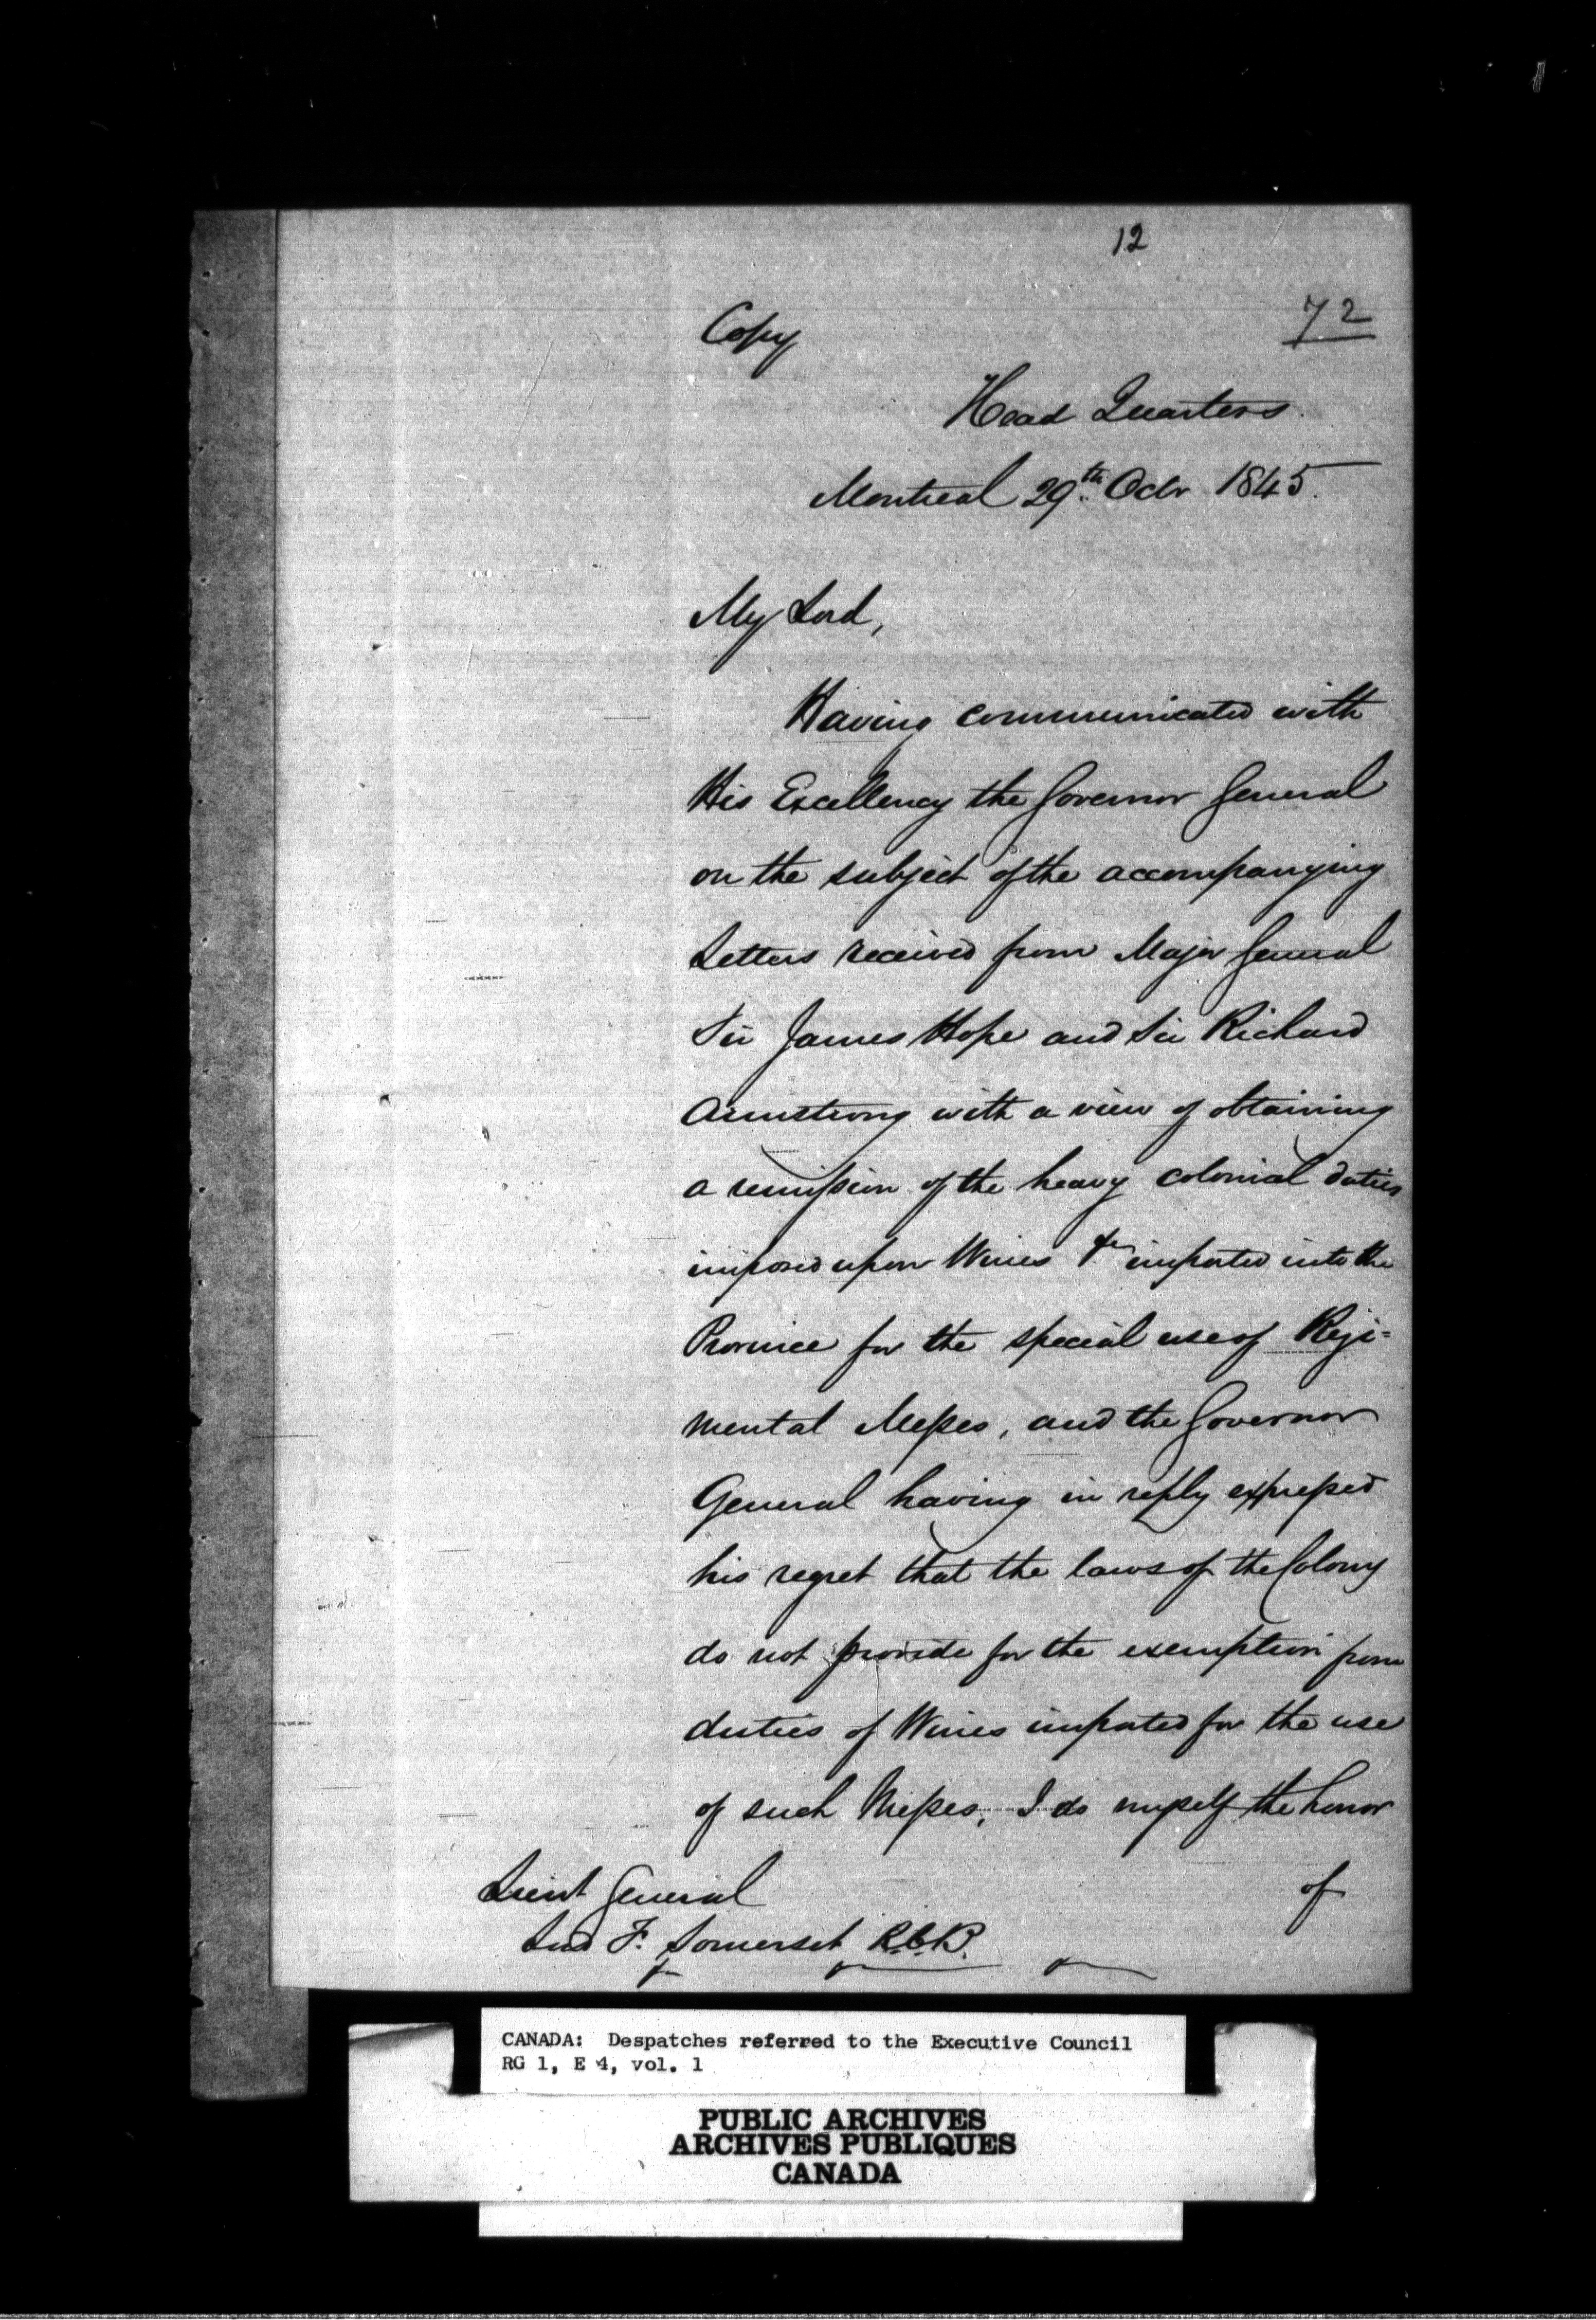 12
72
Copy
Head Quarters
Montreal 29th. Octr 1845.
My Lord,
Having communicated with
His Excellency the Governor General
on the subject of the accompanying
Letters received from Major General
Sir James Hope and Sir Richard
Armstrong with a view of obtaining
a remission of the heavy colonial duties
imposed upon Wines &c imported into the
Province for the special use of Regi=
mental Messes, and the Governor
General having in reply expressed
his regret that the laws of the Colony
do not provide for the exemption from
duties of Wines imported for the use
of such Messes, I do myself the honor
of
Lieut General
Lord F. Somerset K.C.B.
CANADA: Despatches referred to the Executive Council
RG 1, E 4, vol. 1
PUBLIC ARCHIVES
ARCHIVES PUBLIQUES
CANADA